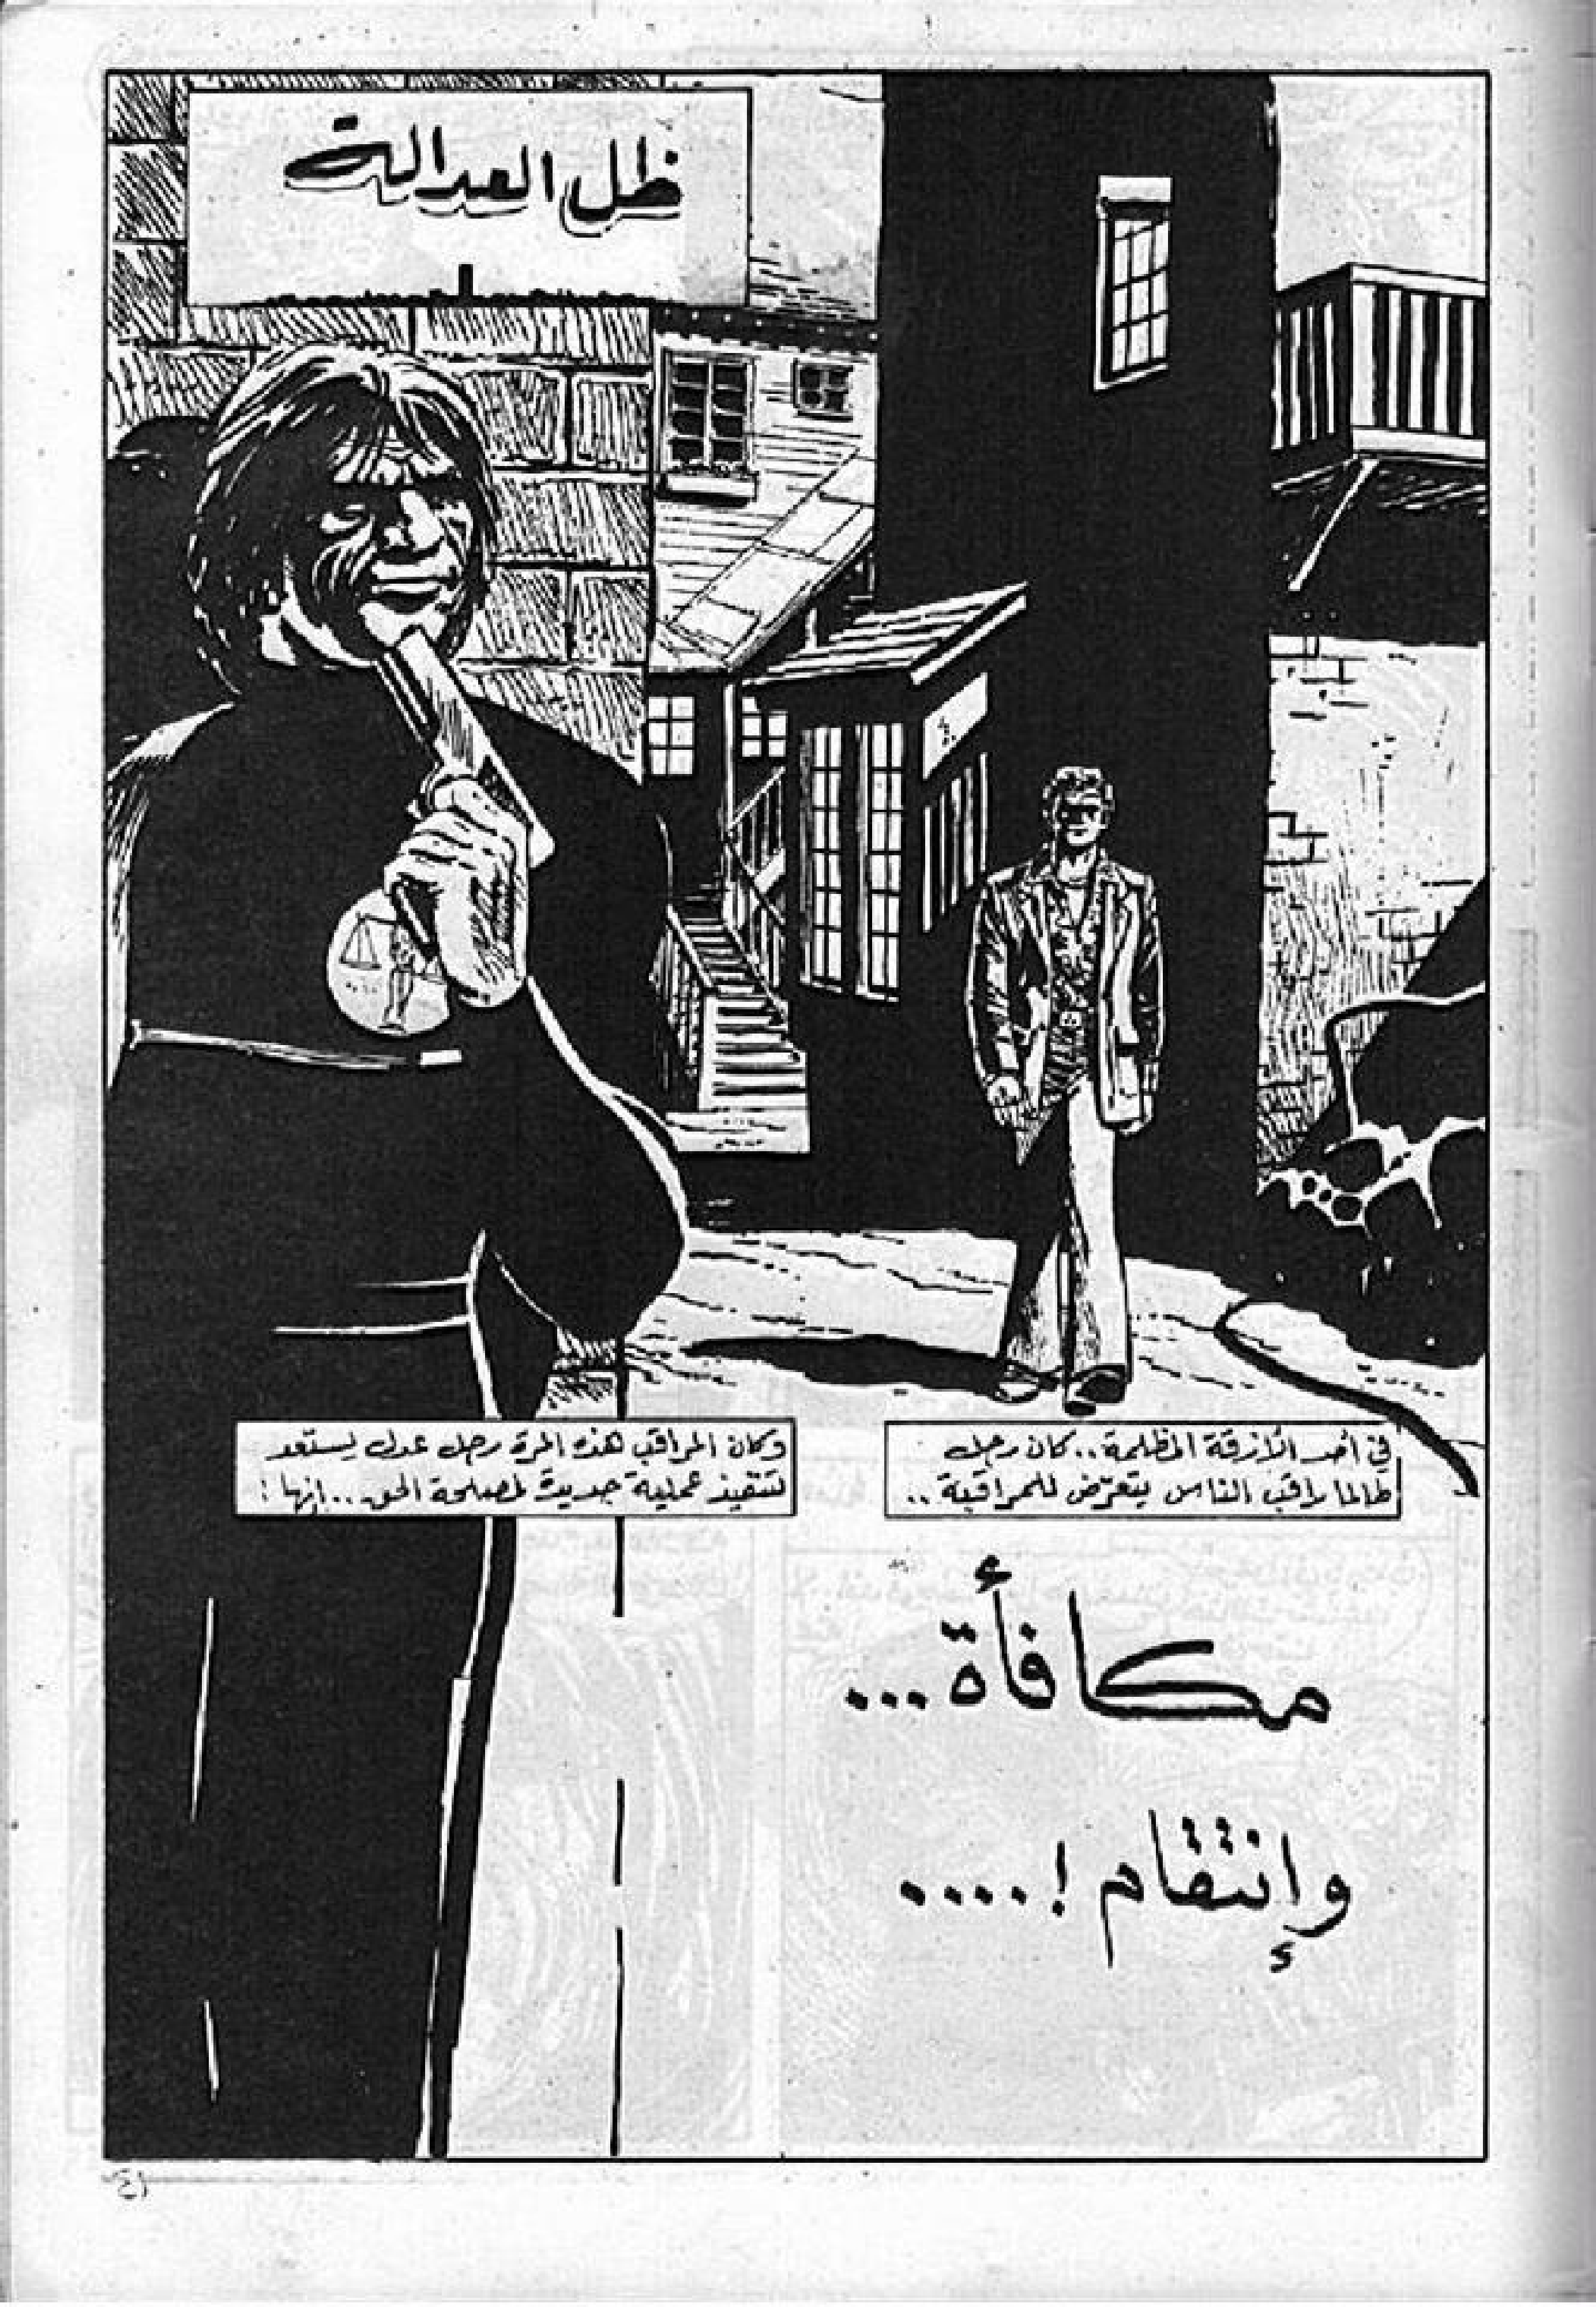 ظل العدالة
في أحد الأزقة المظلمة.. كان رجل
طالما راقب الناس يتعرّض للمراقبة..
وكان المراقب هذه المرة رجل عدل يستعد
لتنفيذ عملية جديدة لمصلحة الحق.. إنها :
مكافأة...
وإنتقام !....